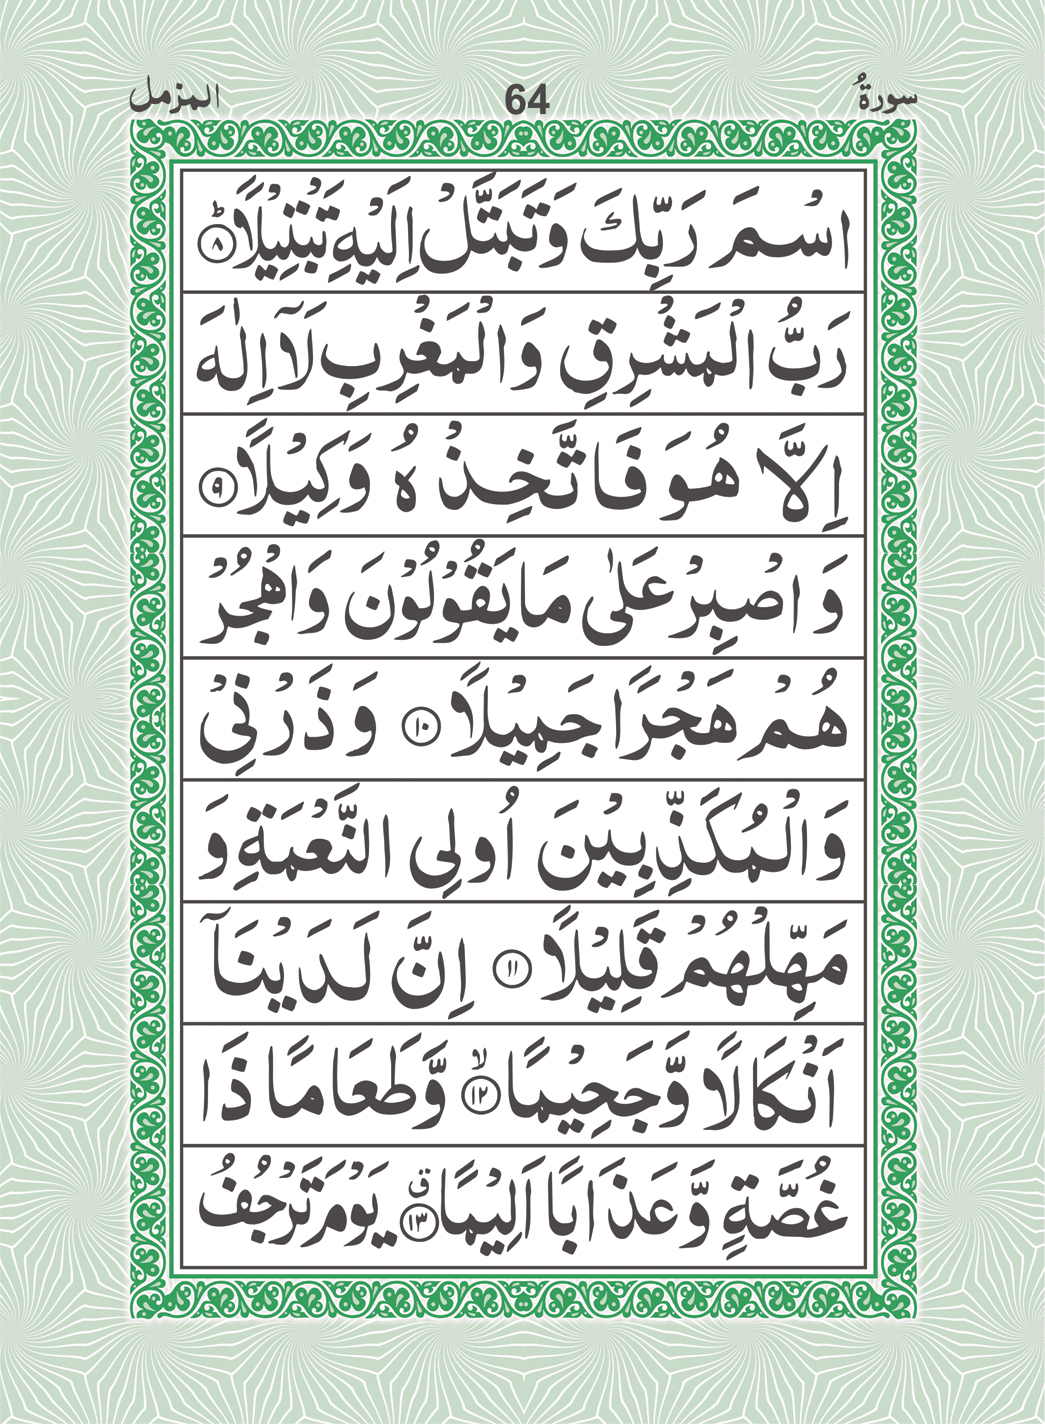 سورةُ 64 المزمل
اسْمَ رَبِّكَ وَتَبَتَّلْ اِلَيْهِ تَبْتِيْلًا ؕ‏﴿۸﴾
رَبُّ الْمَشْرِقِ وَالْمَغْرِبِ لَآ اِلٰهَ
اِلَّا هُوَ فَاتَّخِذْهُ وَكِيْلًا ﴿۹﴾
وَاصْبِرْ عَلٰى مَا يَقُوْلُوْنَ وَاهْجُرْ
هُمْ هَجْرًا جَمِيْلًا ﴿۱۰﴾ وَذَرْنِىْ
وَالْمُكَذِّبِيْنَ اُولِى النَّعْمَةِ وَ
مَهِّلْهُمْ قَلِيْلًا ﴿۱۱﴾ اِنَّ لَدَيْنَآ
اَنْكَالًا وَّجَحِيْمًا ۙ﴿۱۲﴾ وَّطَعَامًا ذَا
غُصَّةٍ وَّعَذَابًا اَلِيْمًا ۛق﴿۱۳﴾ يَوْمَ تَرْجُفُ